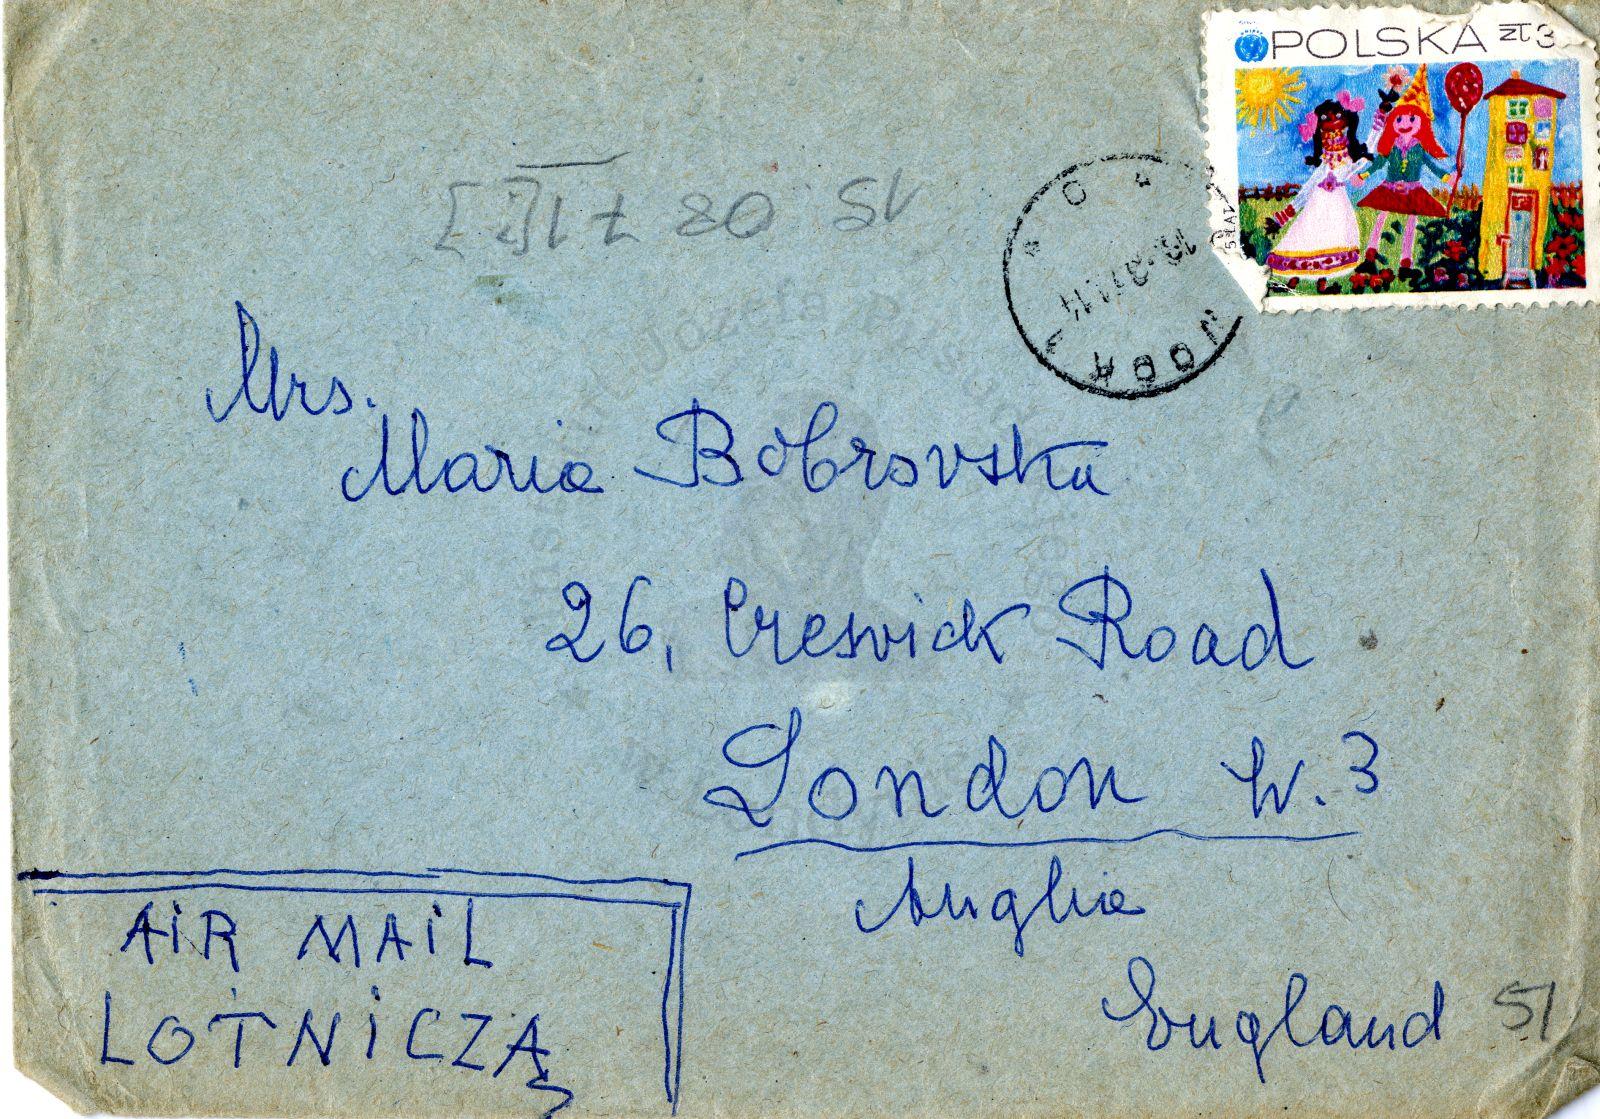 POLSKA zł 3
Mrs.
Maria Bobrovska
26, Creswick Road
London W. 3
Anglia
England
51
AIR MAIL
LOTNICZĄ